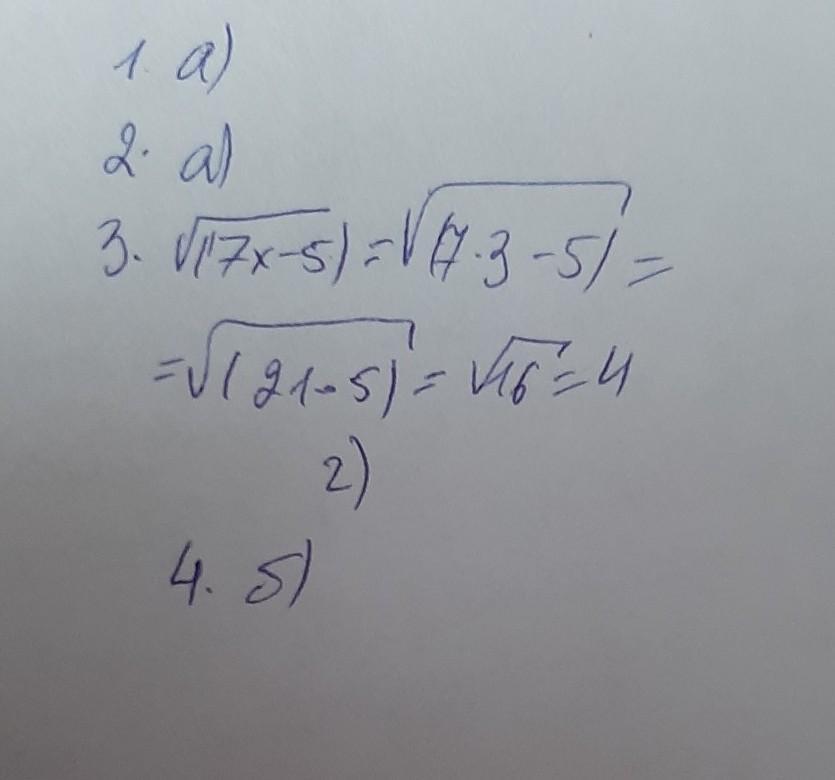 1. а)
2. а)
3. √(7x-5) = √(7·3-5) =
= √(21-5) = √16 = 4
г)
4. б)